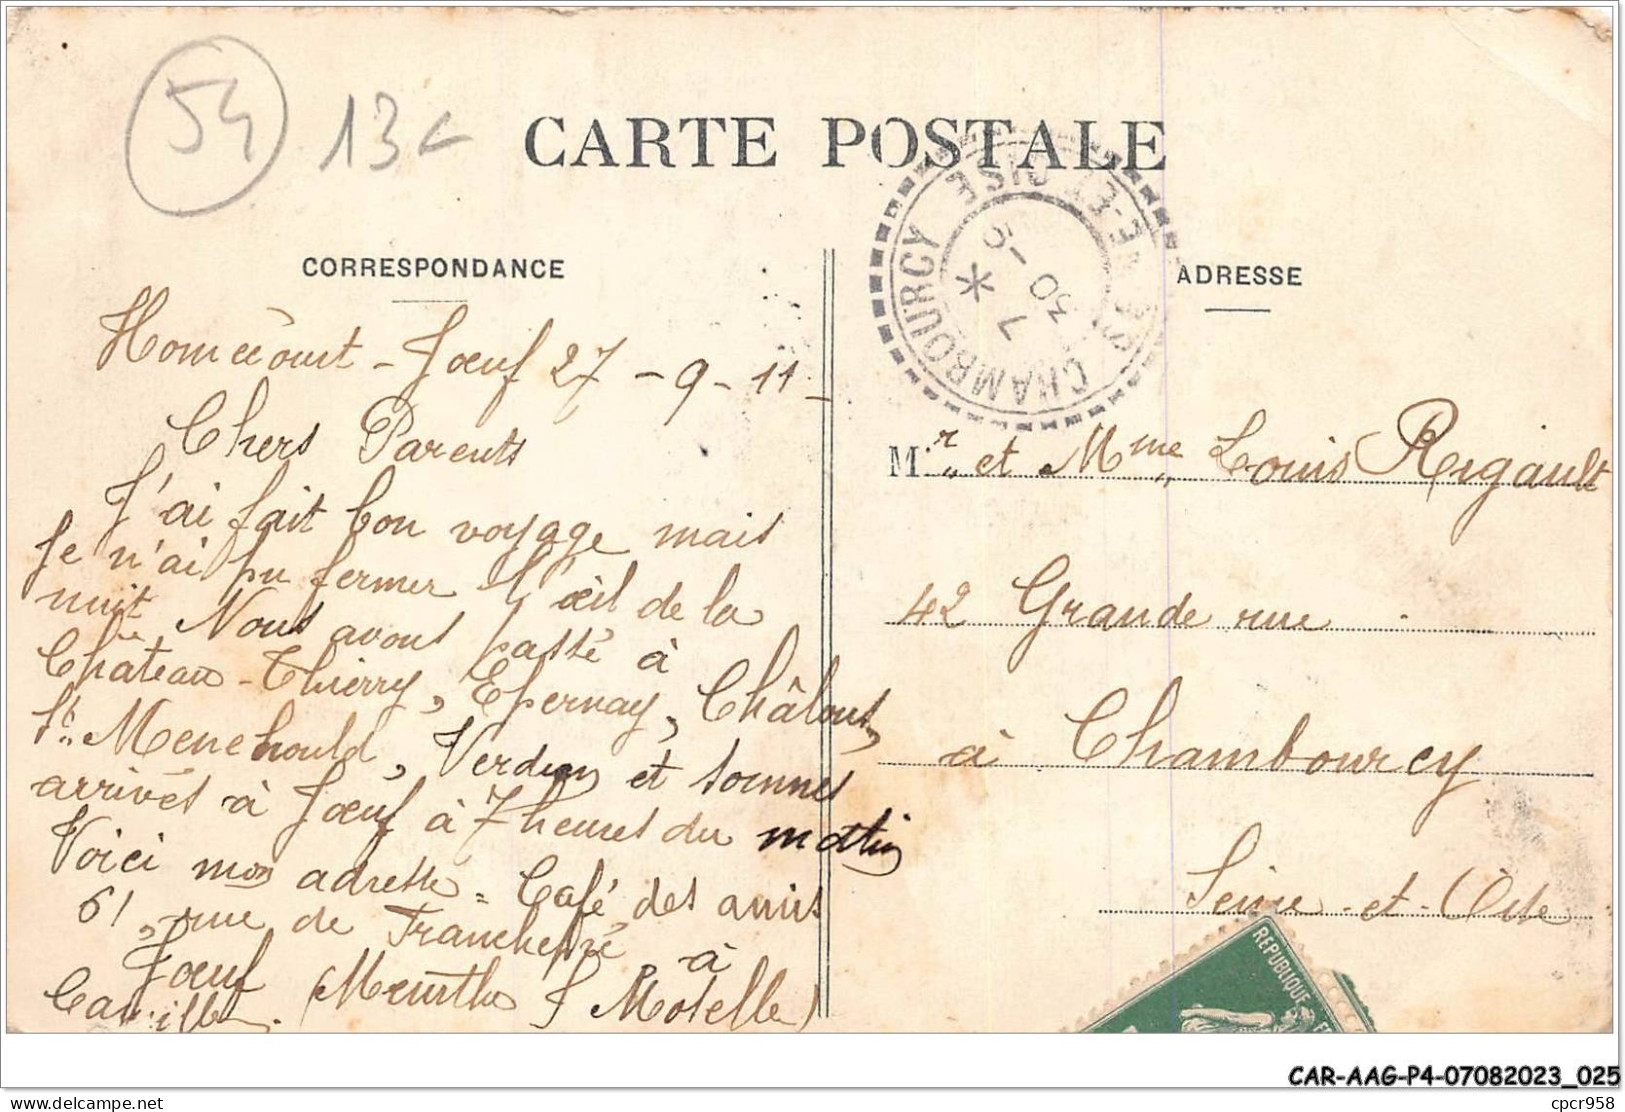 54 13€
CARTE POSTALE
CORRESPONDANCE
Homécourt - Jœuf 27 - 9 - 11
Chers Parents
J'ai fait bon voyage mais
je n'ai pu fermer l'œil de la
nuit. Nous avons passé à
Château-Thierry, Epernay, Châlons,
Ste Menehould, Verdun et sommes
arrivés à Jœuf à 7 heures du matin
Voici mon adresse = Café des amis
61, rue de Franchepré à
Jœuf (Meurthe & Moselle)
CHAMBOURCY
7 *
30 -9
ADRESSE
M.r et Mme Louis Rigault
42 Grande rue
à Chambourcy
Seine-et-Oise
REPUBLIQUE
CAR-AAG-P4-07082023_025
delcampe.net
cpcr958